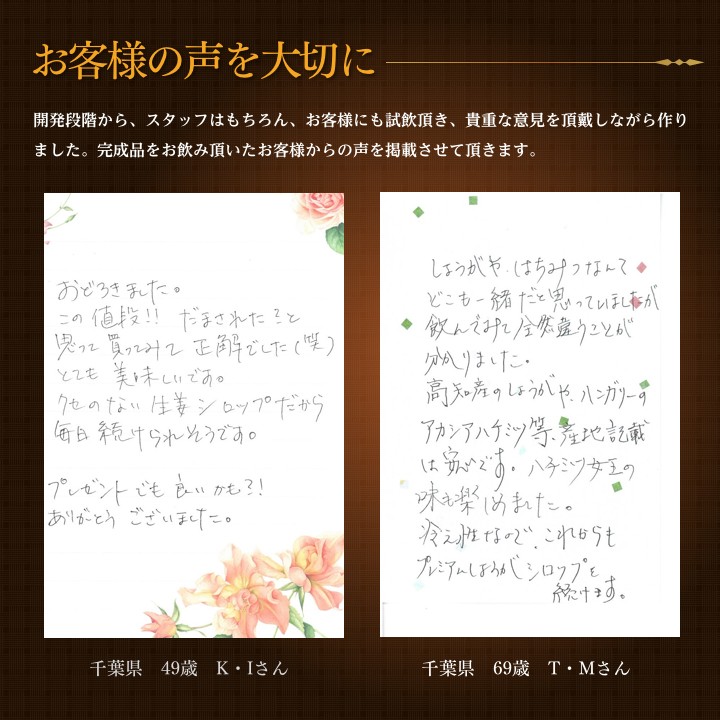 お客様の声を大切に
開発段階から、スタッフはもちろん、お客様にも試飲頂き、貴重な意見を頂戴しながら作り
ました。完成品をお飲み頂いたお客様からの声を掲載させて頂きます。
おどろきました。
この値段!! だまされた?と
思って買ってみて正解でした(笑)
とても美味しいです。
クセのない生姜シロップだから
毎日続けられそうです。
プレゼントでも良いかも?!
ありがとうございました。
しょうがや、はちみつなんて
どこも一緒だと思っていましたが
飲んでみて全然違うことが
分かりました。
高知産のしょうがや、ハンガリーの
アカシアハチミツ等、産地記載
は安心です。ハチミツ女王の
味も楽しめました。
冷え性なので、これからも
プレミアムしょうがシロップを
続けます。
千葉県 49歳 K・Iさん
千葉県 69歳 T・Mさん